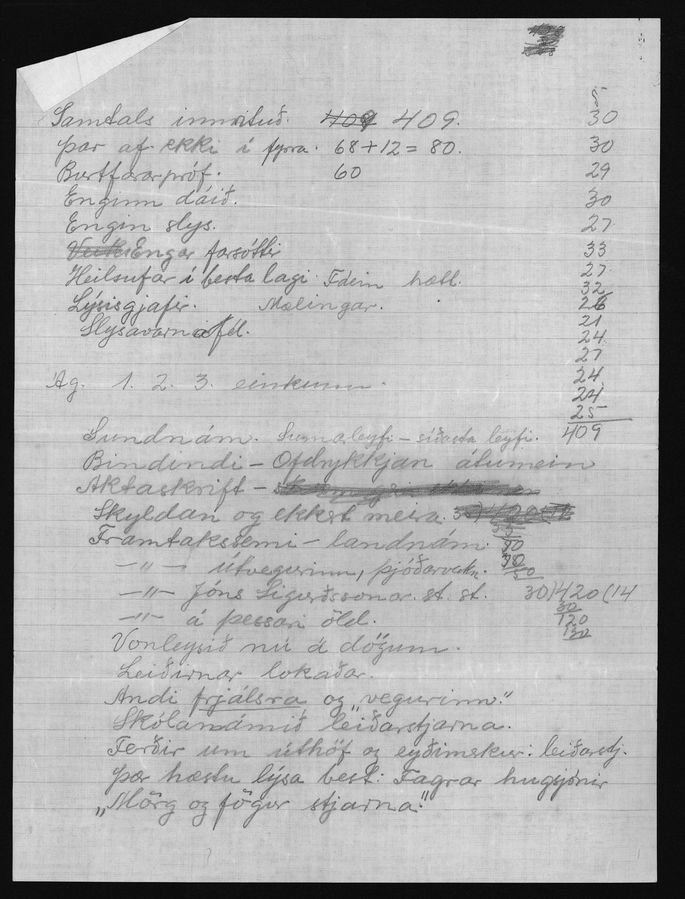 Samtals innrituð. 409 409. 30
Þar af ekki í fyrra. 68+12=80. 30
Burtfararpróf. 60 29
Enginn dáið. 30
Engin slys. 27
Engar farsóttir 33
Heilsufar í besta lagi. Tdein hætt. 27
32
Lýsisgjafir. Mælingar. 26
21
Slysavarnafél. 24
27
Ag. 1. 2. 3. einkunn. 24
24
25
Sundnám. Sumarleyfi - síðasta leyfi. 409
Bindindi - Ofdrykkjan átumein
Aktaskrift -
Skyldan og ekkert meira.
Framtakssemi - landnám.
-"- útvegurinn, þjóðarvakn.
-"- Jóns Sigurðssonar. st. st. 30)420(14
30
-"- á þessari öld. 120
120
Vonleysið nú á dögum.
Leiðirnar lokaðar.
Andi frjálsra og „vegurinn."
Skólanámið leiðarstjarna.
Ferðir um úthöf og eyðimerkur: leiðarstj.
Þær hæstu lýsa best: Fagrar hugsjónir
„Mörg og fögur stjarna."